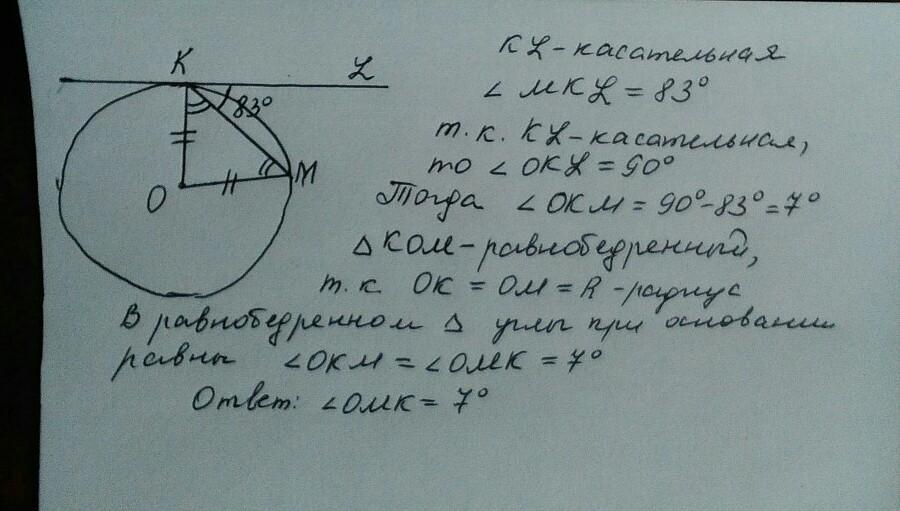 K L
83°
O M
KL - касательная
∠ MKL = 83°
т.к. KL - касательная,
то ∠ OKL = 90°
Тогда ∠ OKM = 90° - 83° = 7°
△ KOM - равнобедренный,
т.к. OK = OM = R - радиус
В равнобедренном △ углы при основании
равны ∠OKM = ∠OMK = 7°
Ответ: ∠OMK = 7°